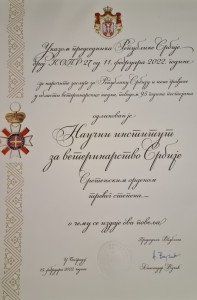 Указом председника Републике Србије
Указ КО бр. 27 од 11. фебруара 2022. године
за нарочите заслуге за Републику Србију и њене грађане
у области ветеринарских наука поводом 95 година постојања
одликован је
Научни институт
за ветеринарство Србије
Сретењским орденом
трећег степена
о чему се издаје ова повеља.
У Београду
15. фебруара 2022. године
Председник Републике
Александар Вучић